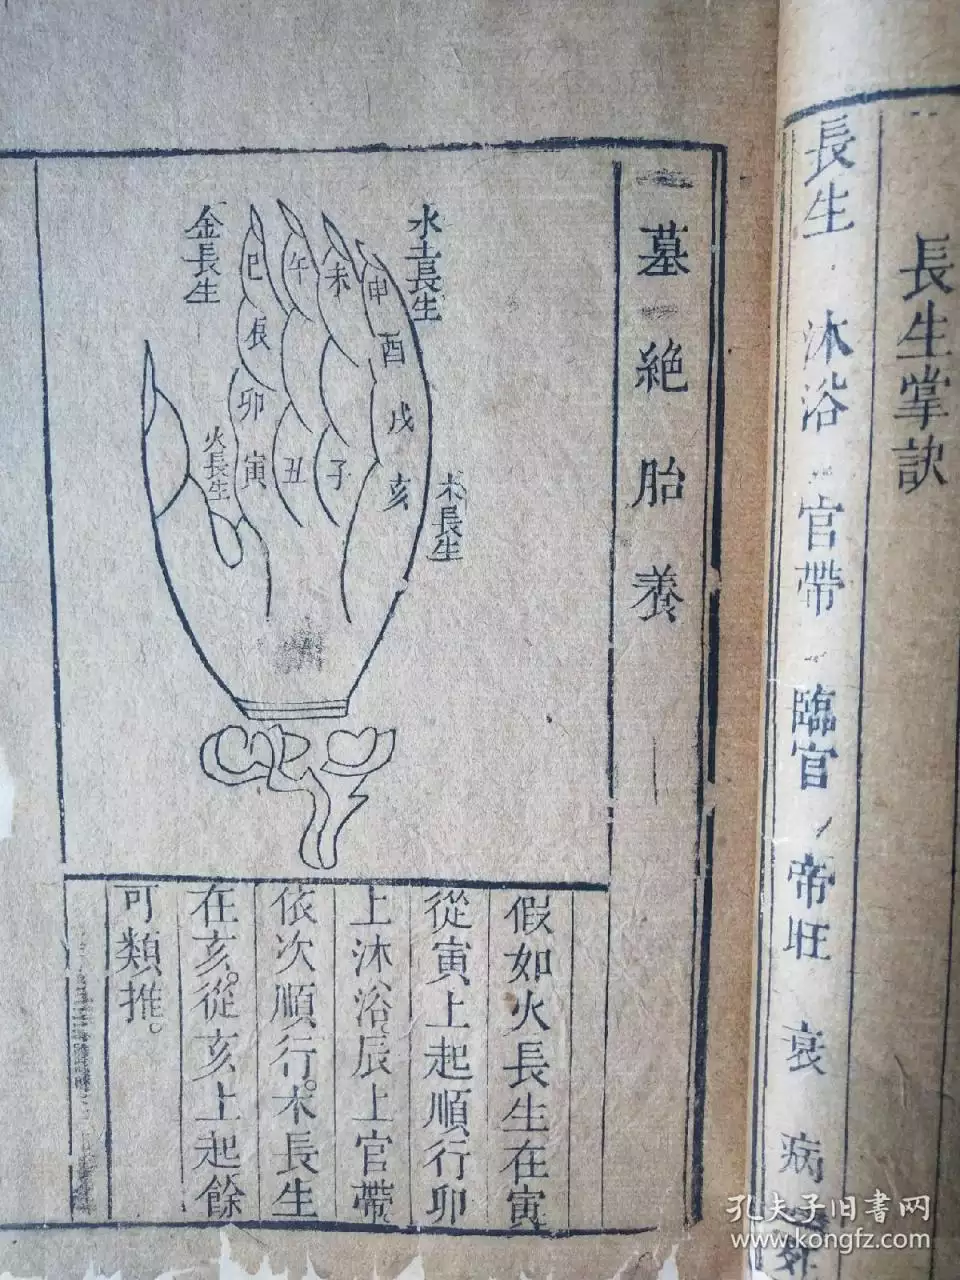 長生掌訣
長生 沐浴 官帶 臨官 帝旺 衰 病
墓 絶 胎 養
水土長生
金長生
火長生
木長生
巳
午
未
申
辰
酉
卯
戌
寅
丑
子
亥
假如火長生在寅
從寅上起順行卯
上沐浴辰上官帶
依次順行。木長生
在亥。從亥上起餘
可類推。
孔夫子旧書网
www.kongfz.com